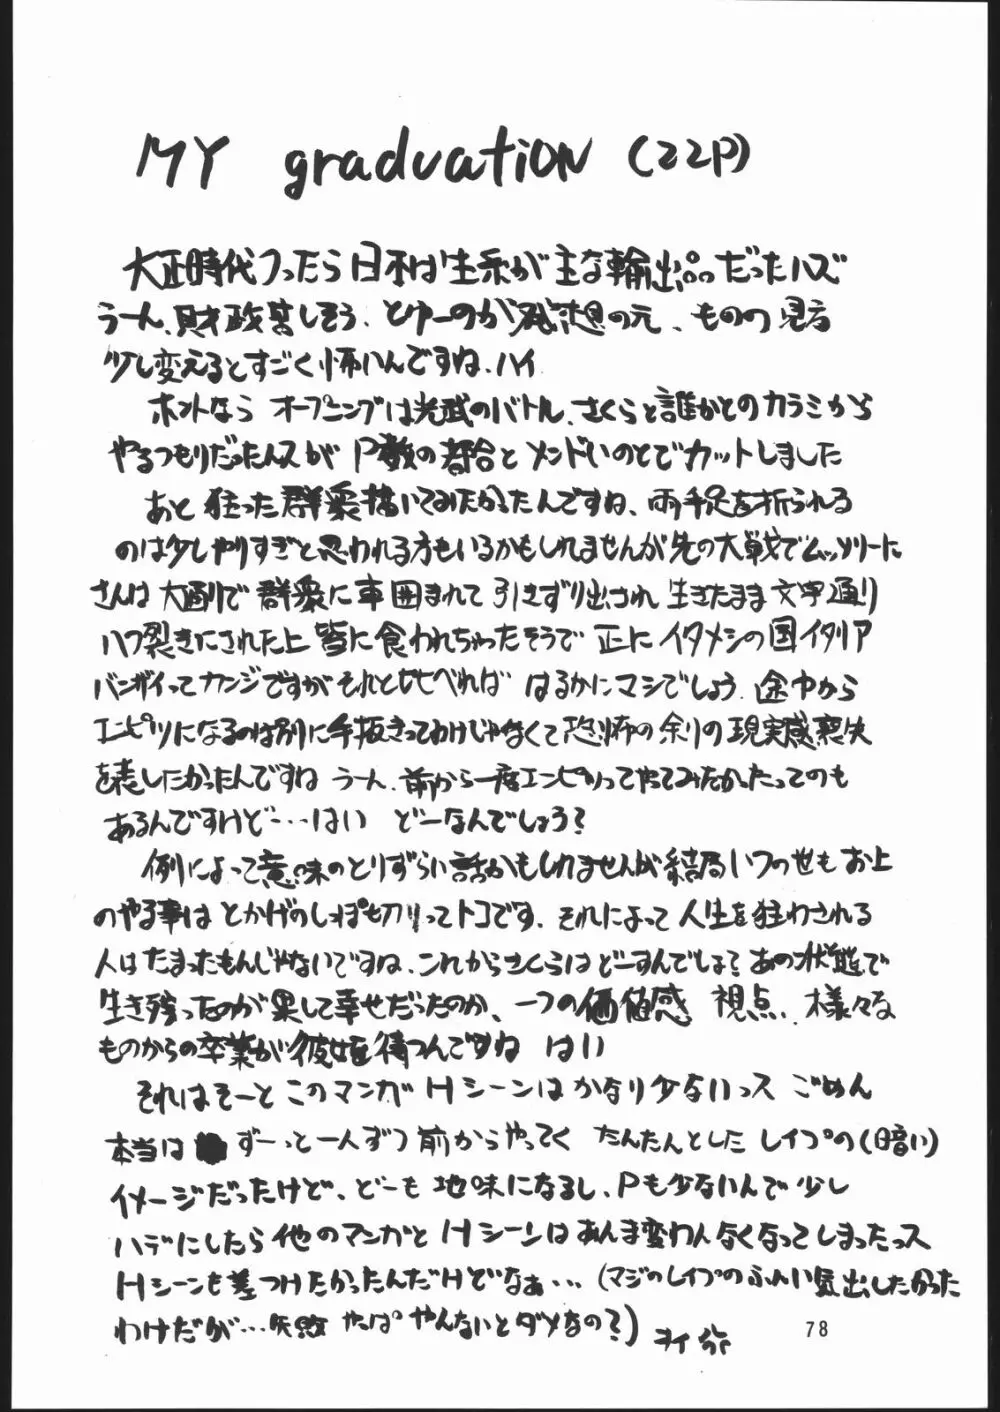 MY graduation (22P)
大正時代つったら日本は生糸が主な輸出品だったハズ
うーん、財政苦しそう、とゆーのが発想の元、ものの見方
少し変えるとすごく怖いんですね、ハイ
ホントなら オープニングは光武のバトル、さくらと誰かとのカラミから
やるつもりだったんスが P数の都合と メンドいのとでカットしました
あと 狂った群衆描いてみたかったんですね、両手足を折られる
のは少しやりすぎと思われる方もいるかもしれませんが先の大戦でムッソリーニ
さんは 大通りで 群衆に車囲まれて 引きずり出され 生きたまま文字通り
八つ裂きにされた上 皆に食われちゃったそうで 正に イタメシの国イタリア
バンザイってカンジですが それと比べれば はるかにマシでしょう、途中から
エンピツになるのは別に手抜きってわけじゃなくて恐怖の余りの現実感喪失
を表したかったんですね うーん、前から一度エンピツってやってみたかったってのも
あるんですけどー…はい どーなんでしょう?
例によって意味のとりずらい話かもしれませんが 結局いつの世も お上
のやる事は とかげのしっぽ切りってトコです、それによって人生を狂わされる
人はたまったもんじゃないですね、これからさくらはどーすんでしょ? あの状態で
生き残ったのが果して幸せだったのか、一つの価値感 視点、様々な
ものからの卒業が彼女を待つんですね はい
それはそーと このマンガ Hシーンはかなり少ないっス ごめん
本当は ずーっと一人ずつ前からやってく たんたんとした レイプの(暗い)
イメージだったけど、どーも 地味になるし、Pも少ないんで少し
ハデにしたら他のマンガと Hシーンはあんま変わんなくなってしまったっス
Hシーンも差つけたかったんだけどなぁ…(マジのレイプのふんい気出したかった
わけだが…失敗 やっぱ やんないとダメなの?)
78